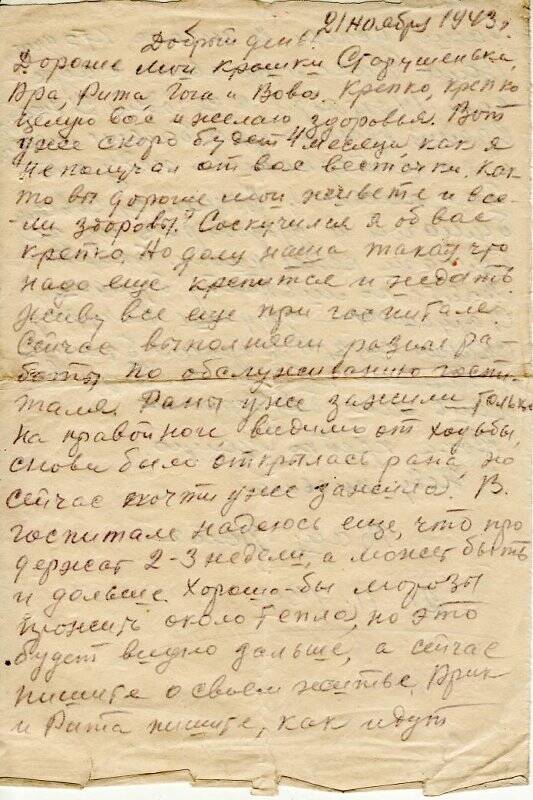 21 ноября 1943 г.
Добрый день!
Дорогие мои крошки Старушенька,
Ара, Рита, Гога и Вова. Крепко, крепко
целую вас и желаю здоровья. Вот
уже скоро будет 4 месяца как я
не получал от вас весточки. Как
то вы дорогие мои живете и все-
-ли здоровы? Соскучился я об вас
крепко. Но долг наша такая, что
надо еще крепится и ждать.
Живу все еще при госпитале.
Сейчас выполняем разные ра-
боты по обслуживанию госпи-
таля. Раны уже зажили только
на правой ноги, видимо от ходьбы,
снова было открылась рана, но
сейчас почти уже зажила. В
госпитале надеюсь еще, что про
держат 2-3 недели, а может быть
и дольше. Хорошо-бы морозы
прожить около тепла, но это
будет видно дальше, а сейчас
пишите о своем житье. Арик
и Рита пишите, как идут